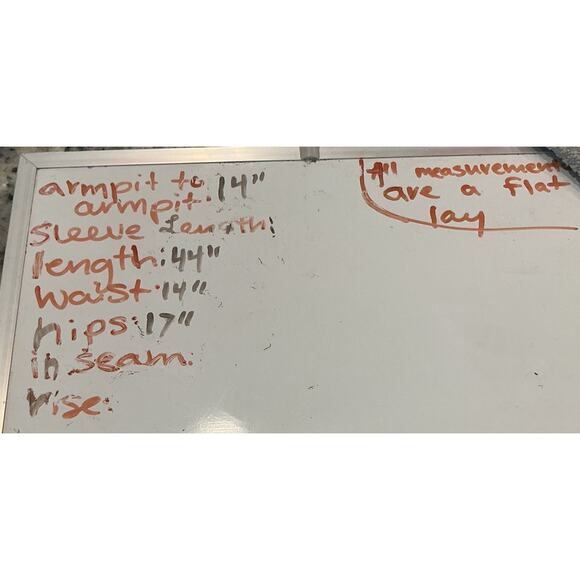 armpit to
armpit: 14"
sleeve Length:
length: 44"
waist: 14"
hips: 17"
in seam:
rise:
All measurement
are a flat
lay